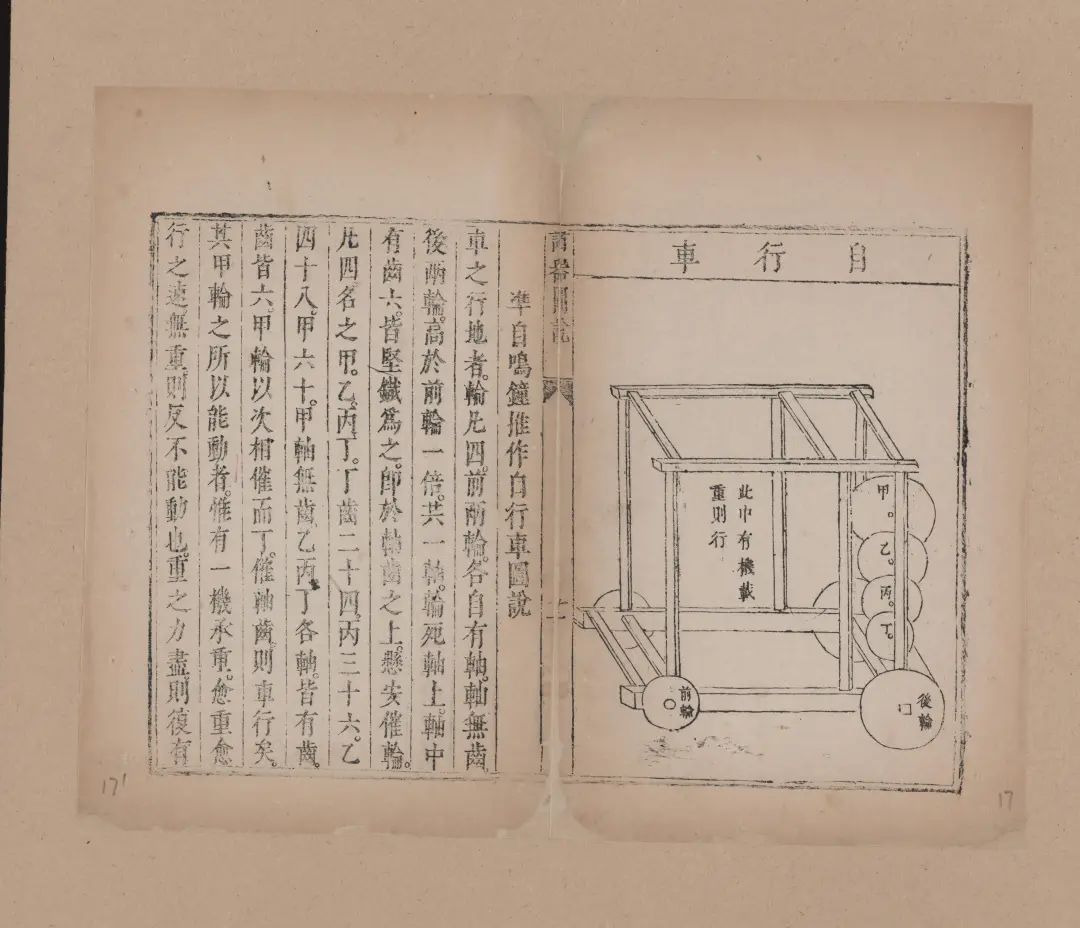 自行車
此中有機載
重則行
甲
乙
丙
丁
前輪
後輪
諸器圖說
準自鳴鐘推作自行車圖說
車之行地者。輪凡四。前兩輪。各自有軸。軸無齒。
後兩輪。高於前輪一倍。共一軸。輪死軸上。軸中
有齒六。皆堅鐵爲之。卽於軸齒之上。懸安催輪。
凡四。名之甲。乙。丙。丁。丁齒二十四。丙三十六。乙
四十八。甲六十。甲軸無齒。乙丙丁各軸。皆有齒。
齒皆六。甲輪以次相催而丁。催軸齒。則車行矣。
其甲輪之所以能動者。惟有一機承重。愈重愈
行之速。無重則反不能動也。重之力盡。則復有
17
17